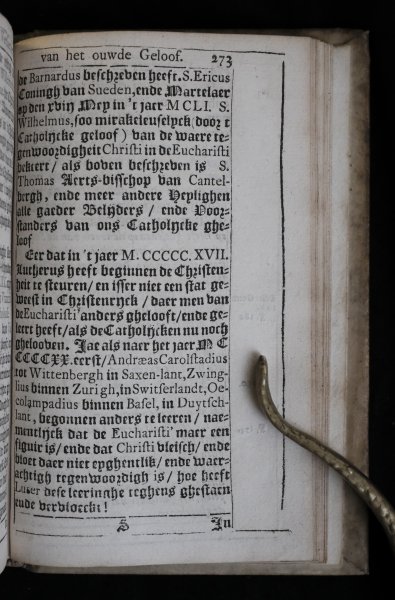 van het ouwde Geloof. 273
de Barnardus beschreven heeft. S. Ericus
Coningh van Sueden, ende Martelaer
op den xviij Mey in 't jaer MCLI. S.
Wilhelmus, soo mirakeleuselyck, door t
Catholijcke geloof) van de waere te-
genwoordigheit Christi in de Eucharisti
bekeert / als boven beschreven is S.
Thomas Aerts-bisschop van Cantel-
bergh, ende meer andere Heylighen
alle gaeder Belijders / ende Voor-
standers van ons Catholijcke ghe-
loof
Eer dat in 't jaer M. CCCCC. XVII.
Lutherus heeft beginnen de Christen-
heit te steuren / en isser niet een stat ge-
weest in Christenrijck / daer men van
de Eucharisti' anders ghelooft / ende ge-
leert heeft / als de Catholijcken nu noch
ghelooven. Jae als naer het jaer M C
CCCCXX. eerst / Andræas Carolstadius
tot Wittenbergh in Saxen-lant, Zwing-
lius binnen Zurigh, in Switserlandt, Oe-
colampadius binnen Basel, in Duytsch-
lant, begonnen anders te leeren / nae-
mentlijck dat de Eucharisti' maer een
figuir is / ende dat Christi vleisch / ende
bloet daer niet eyghentlik / ende waer-
achtigh tegenwoordigh is / hoe heeft
Luter dese leeringhe teghens ghestaen
ende vervloeckt !
S In